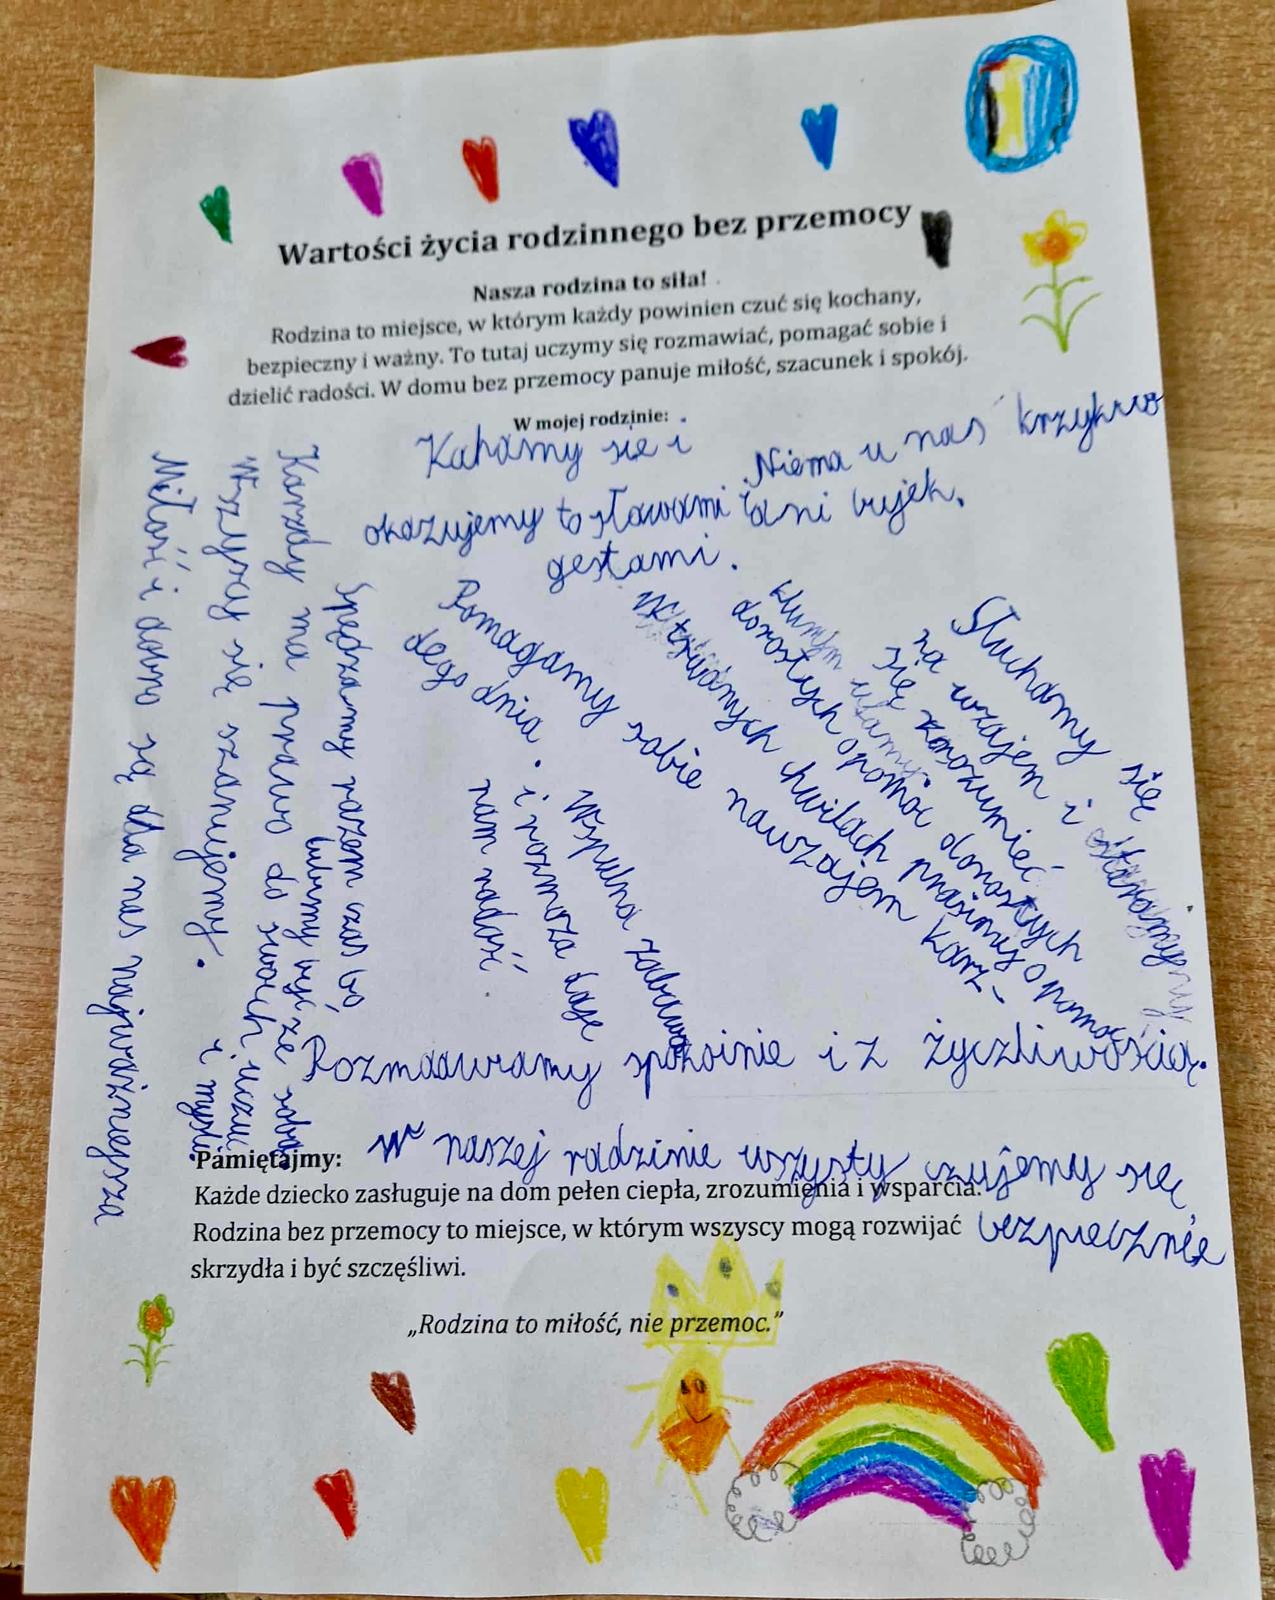 Wartości życia rodzinnego bez przemocy
Nasza rodzina to siła!
Rodzina to miejsce, w którym każdy powinien czuć się kochany,
bezpieczny i ważny. To tutaj uczymy się rozmawiać, pomagać sobie i
dzielić radości. W domu bez przemocy panuje miłość, szacunek i spokój.
W mojej rodzinie:
Kahamy się i
okazujemy to sławami
gestami.
Niema u nas krzykuw
ani bujek.
Słuchamy się
na wzajem i staramy
się zrozumieć
dorosłych o pomoc dorosłych
W trudnych chwilach prosimy o pomoc
Pomagamy sobie nawzajem karz-
dego dnia.
Wspulna zabawa
i rozmoza daje
nam radość
Spędzamy razem czas bo
lubimy być ze sobą
Karzdy ma prawo do swoich uczuć
i myśli.
Wszyscy się szanujemy.
Miłość i dobro są dla nas najważnieysza
Rozmaawiamy spokoinie i z życzliwością.
Pamiętajmy:
W naszej rodzinie wszysty czujemy się
bezpiecznie
Każde dziecko zasługuje na dom pełen ciepła, zrozumienia i wsparcia.
Rodzina bez przemocy to miejsce, w którym wszyscy mogą rozwijać
skrzydła i być szczęśliwi.
„Rodzina to miłość, nie przemoc.”